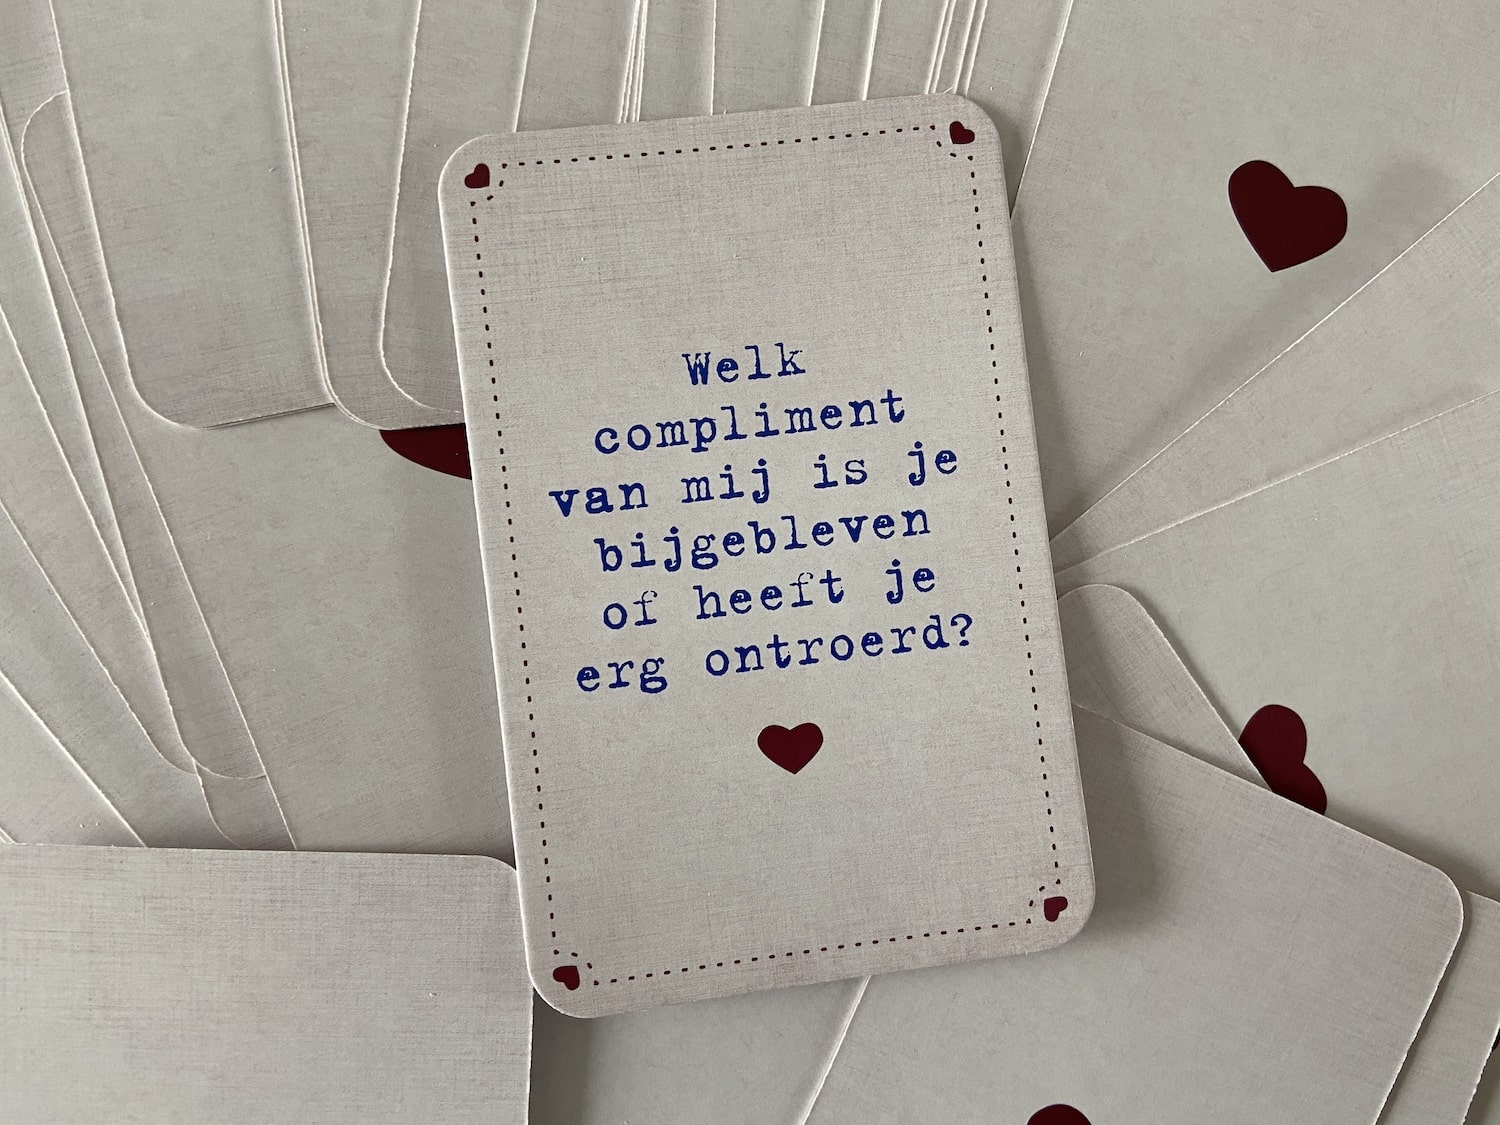 Welk
compliment
van mij is je
bijgebleven
of heeft je
erg ontroerd?